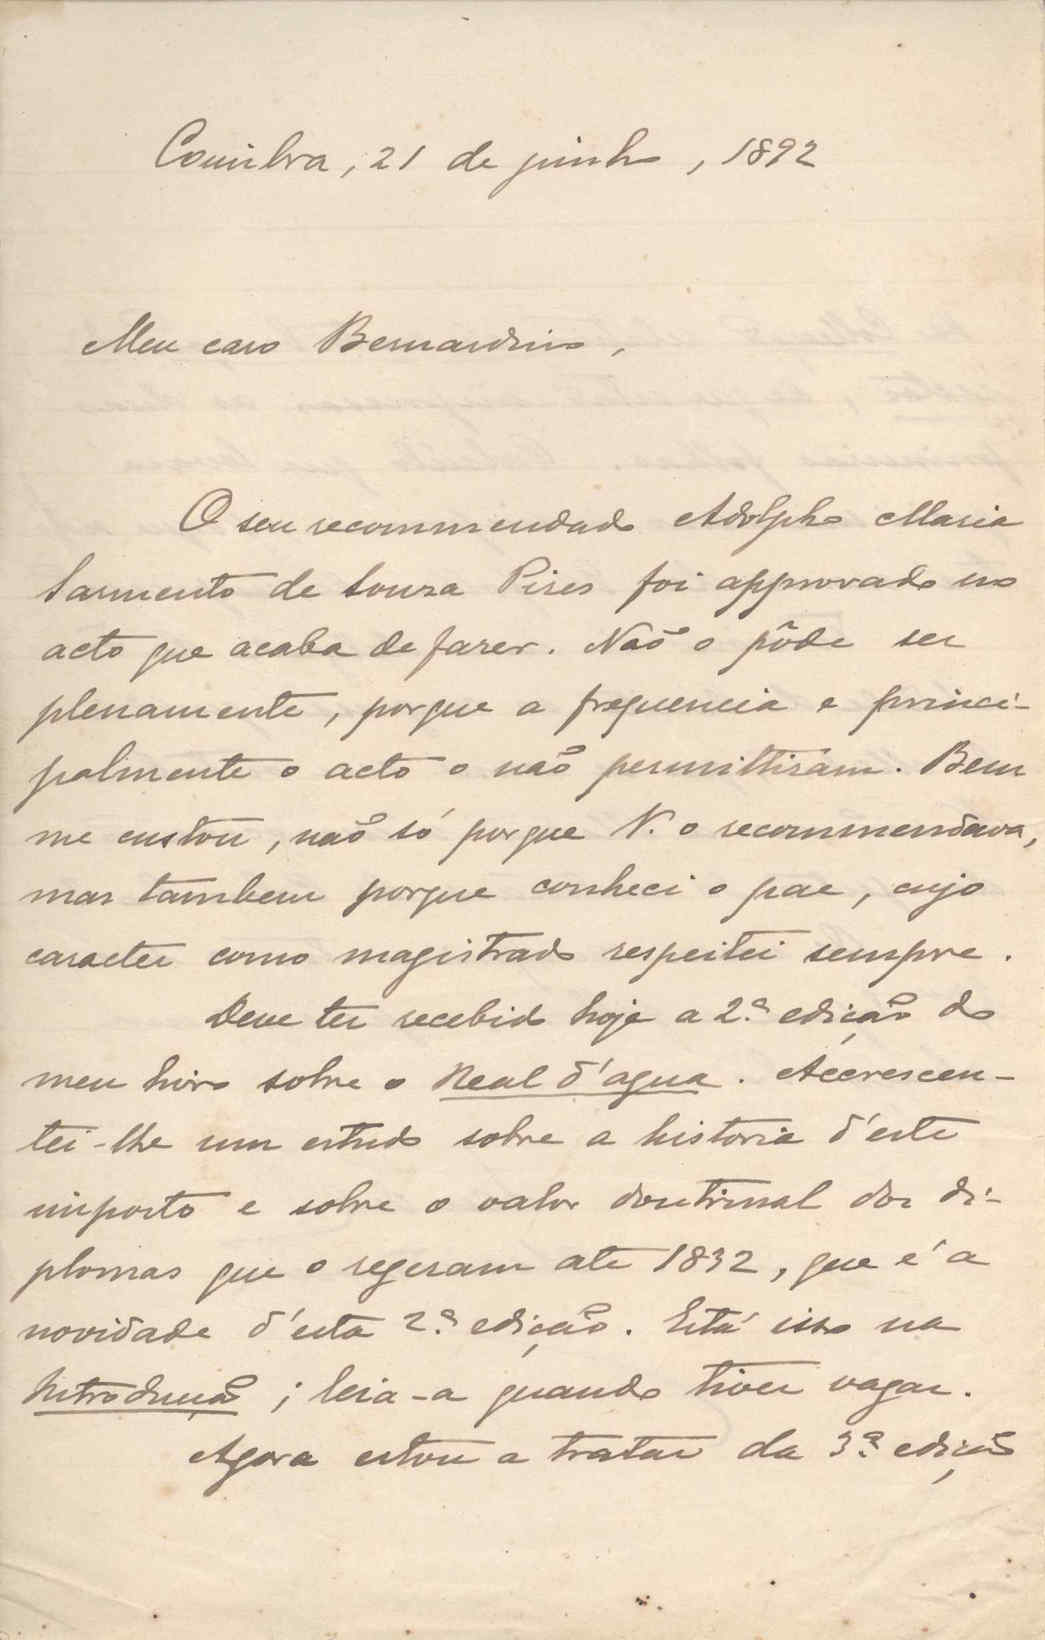 Coimbra, 21 de junho, 1892
Meu caro Bernardino,
O seu recommendado Adolpho Maria
Sarmento de Souza Pires foi approvado no
acto que acaba de fazer. Não o pôde ser
plenamente, porque a frequencia e princi-
palmente o acto o não permittiram. Bem
me custou, não só porque V. o recommendava,
mas tambem porque conheci o pae, cujo
caracter como magistrado respeitei sempre.
Deve ter recebido hoje a 2.ª edição do
meu livro sobre o Real d'agua. Accrescen-
tei-lhe um estudo sobre a historia d'este
imposto e sobre o valor doutrinal dos di-
plomas que o regeram até 1832, que é a
novidade d'esta 2.ª edição. Está isso na
Introducção; leia-a quando tiver vagar.
Agora estou a tratar da 3.ª edição